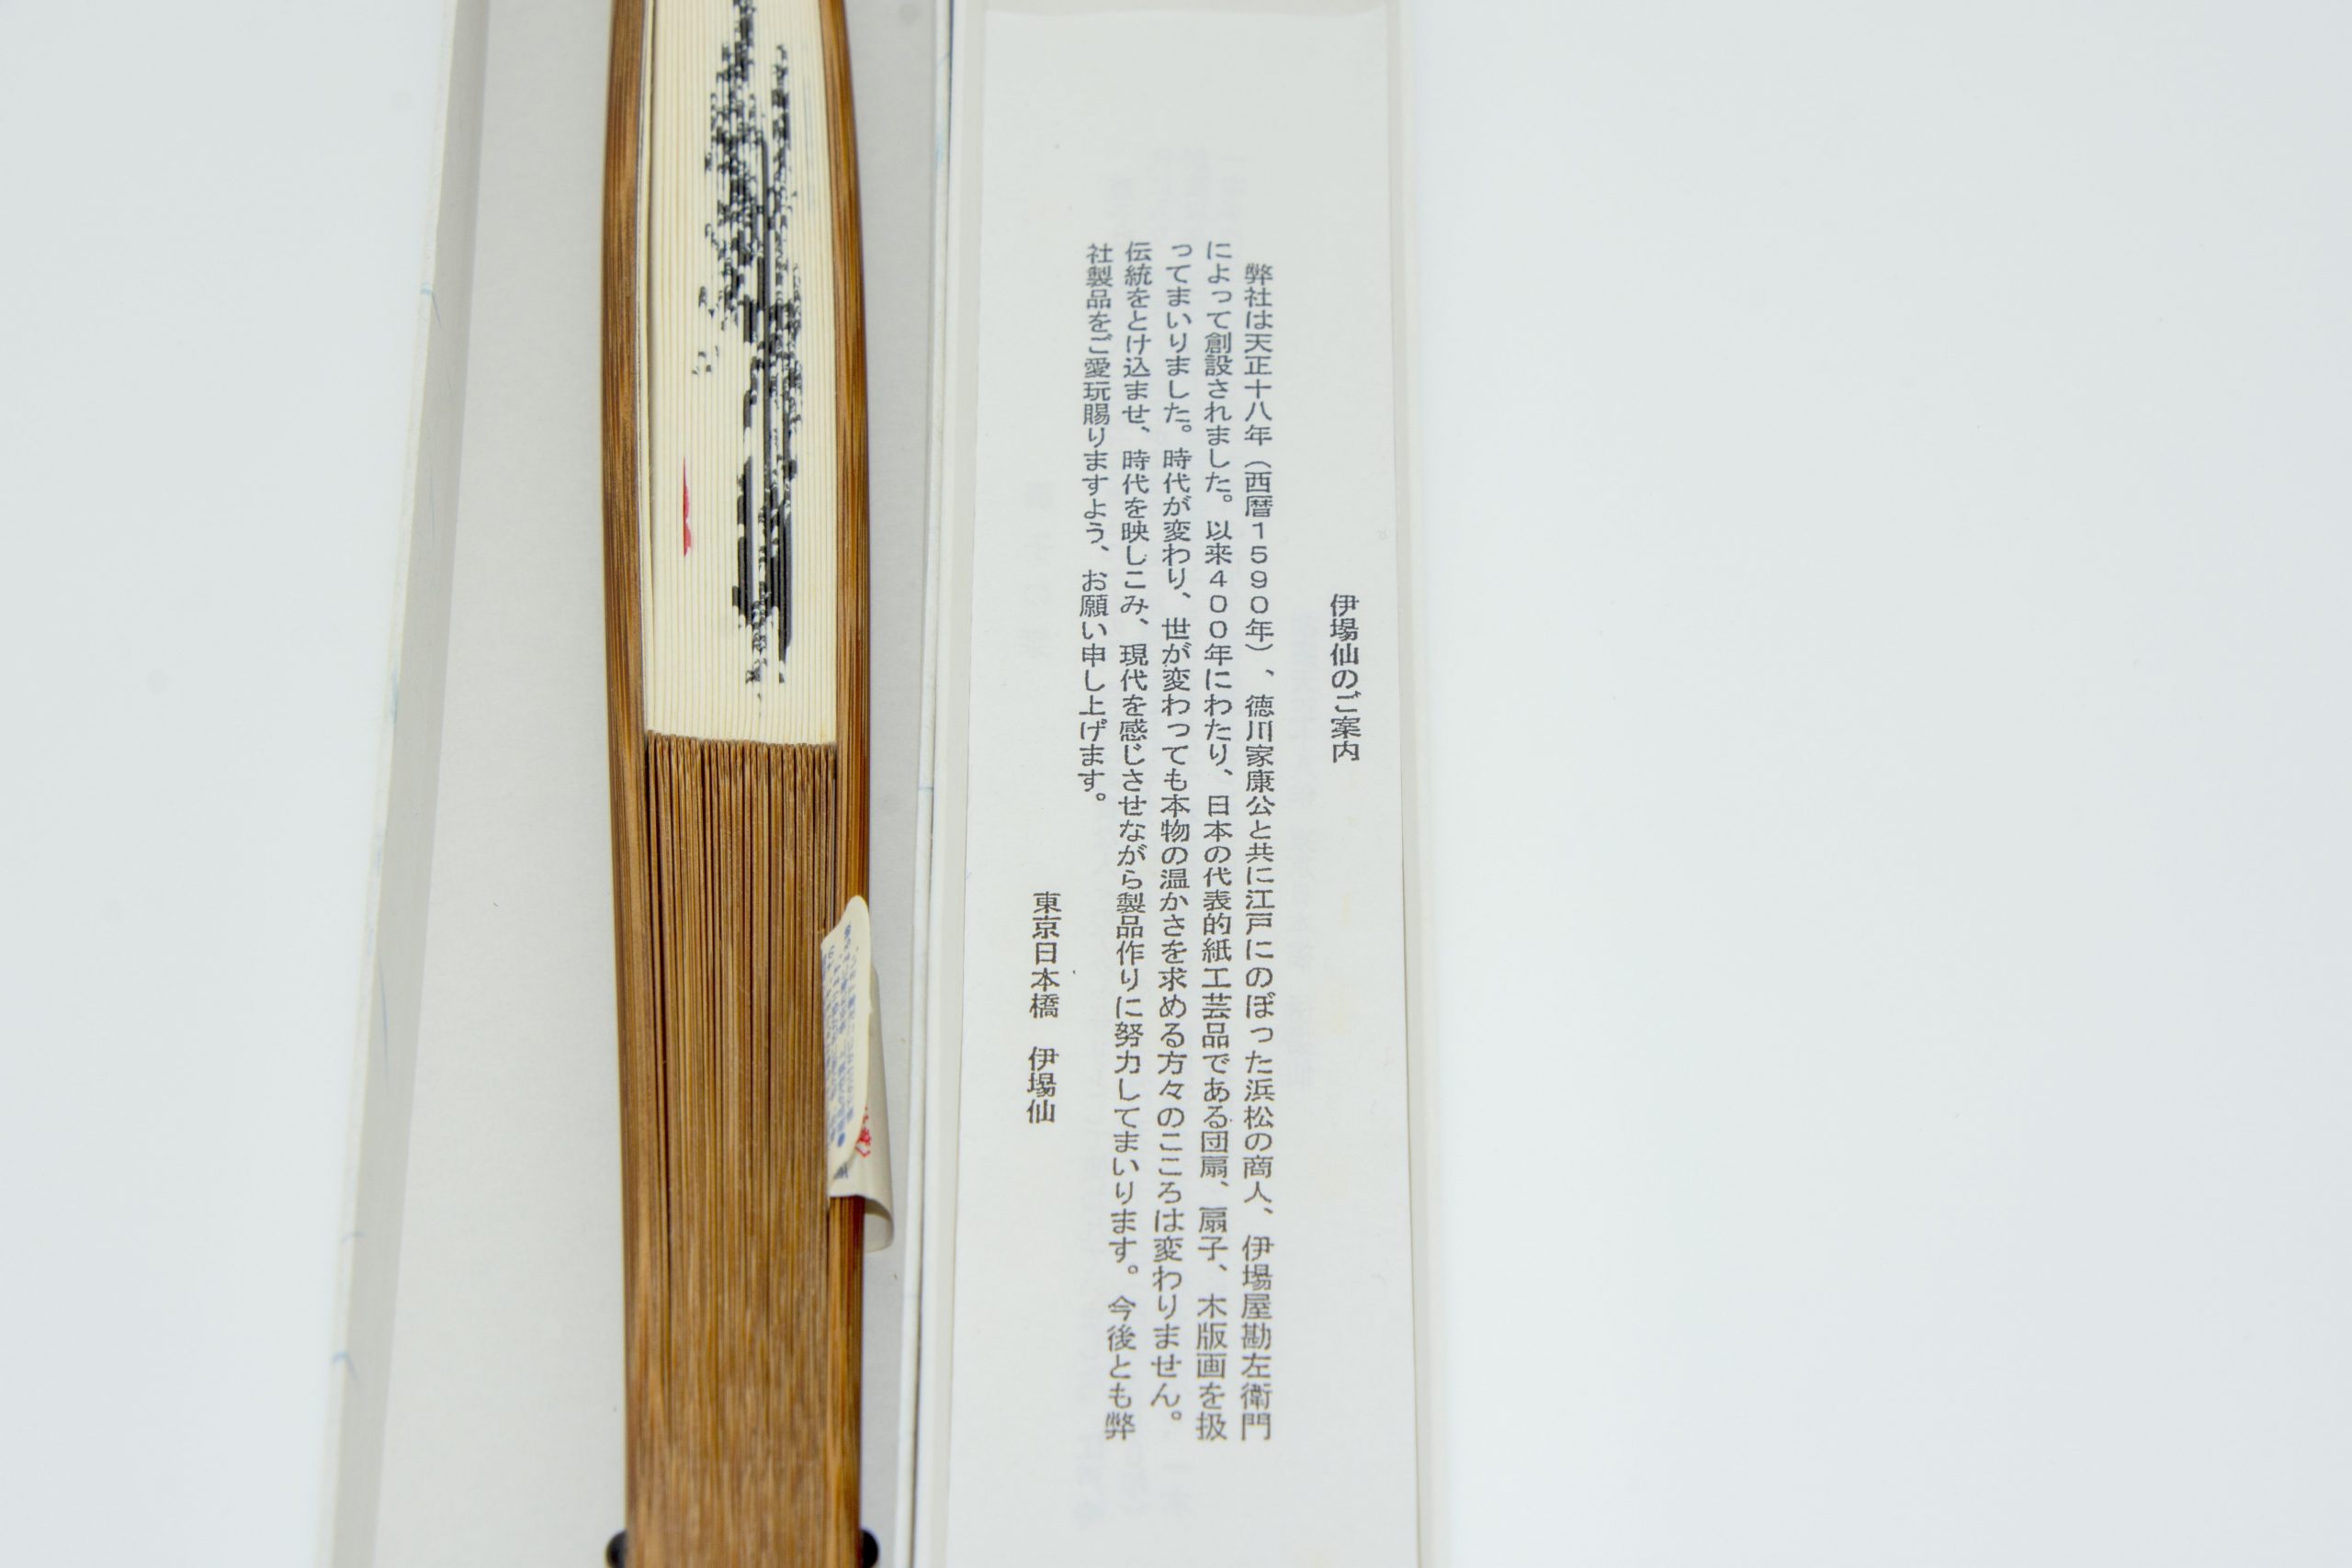 伊場仙のご案内
弊社は天正十八年（西暦１５９０年）、徳川家康公と共に江戸にのぼった浜松の商人、伊場屋勘左衛門
によって創設されました。以来４００年にわたり、日本の代表的紙工芸品である団扇、扇子、木版画を扱
ってまいりました。時代が変わり、世が変わっても本物の温かさを求める方々のこころは変わりません。
伝統をとけ込ませ、時代を映しこみ、現代を感じさせながら製品作りに努力してまいります。今後とも弊
社製品をご愛玩賜りますよう、お願い申し上げます。
東京日本橋　伊場仙